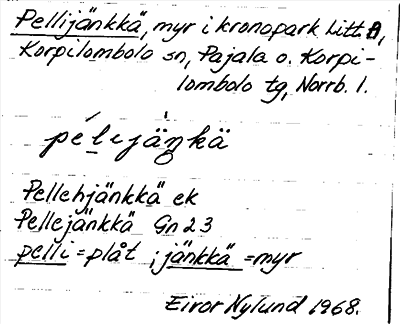 Pellijänkkä, myr i kronopark Litt. B,
Korpilombolo sn, Pajala o. Korpi-
lombolo tg, Norrb. l.
pélijäŋkä
Pellehjänkkä ek
Pellejänkkä Gn 23
pelli = plåt ; jänkkä = myr
Eivor Nylund 1968.